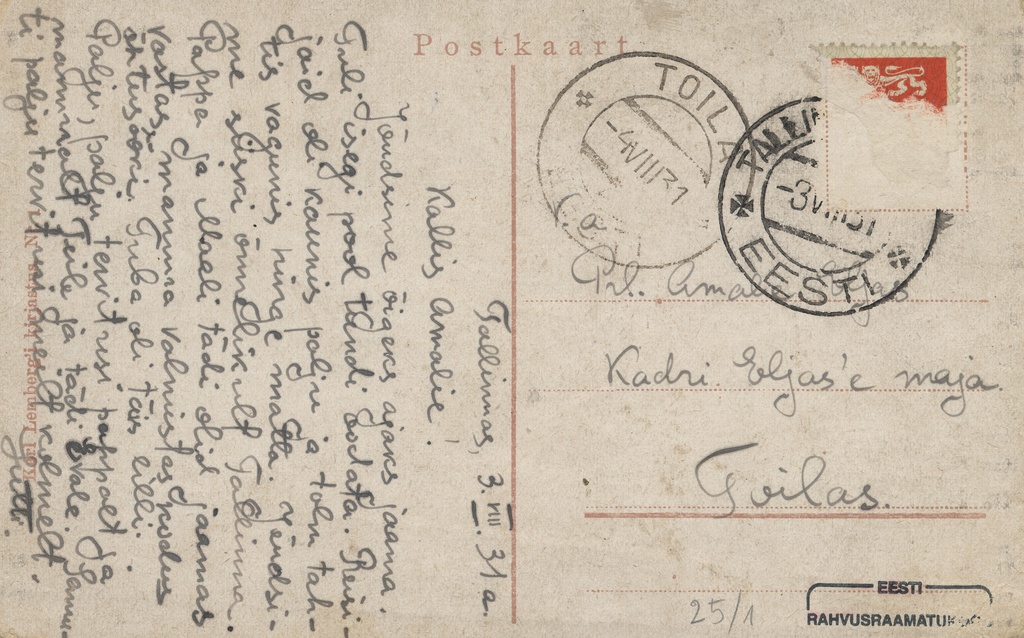 Postkaart
TOILA
-4VIII31
TALLINN
-3VIII31
EESTI
Tallinnas, 3. VIII. 31 a.
Kallis Amalie!
Jõudsime õigeks ajaks jaama.
Tuli isegi pool tundi oodata. Reisi-
jaid oli kaunis palju ja tolm tah-
tis vagunis hinge matta. Jõudsi-
me siiski õnnelikult Tallinna.
Pappa ja Maali tädi olid jaamas
vastas, mamma valmistas kodus
õhtusööki. Tuba oli täis lilli.
Palju, palju tervitusi pappalt ja
mammalt Teile ja tädi Evale. Samu-
ti palju tervitusi meilt kolmelt.
Prl. Amalie Eljas
Kadri Eljas'e maja.
Toilas.
Karl Lembergi kirjastus N
25/1
EESTI
RAHVUSRAAMATUKOGU